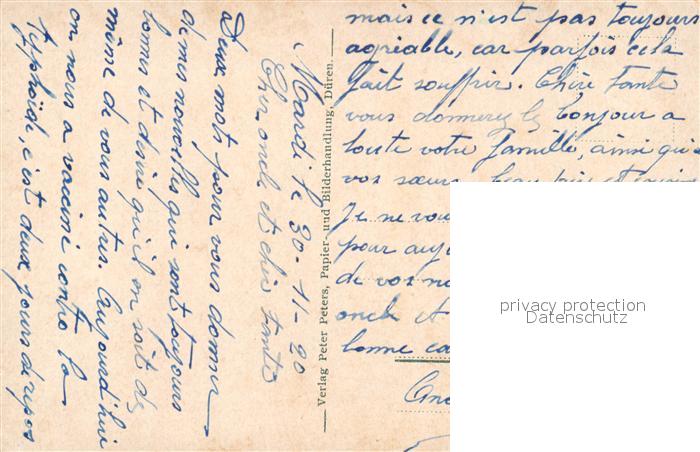 Mardi le 30-11-20
Cher oncle et chère tante
Deux mots pour vous donner
de mes nouvelles qui sont toujours
bonnes et désire qu'il en soit de
même de vous autres. Aujourd'hui
on nous a vacciné contre la
typhoïde, c'est deux jours de repos
mais ce n'est pas toujours
agréable, car parfois cela
fait souffrir. Chère tante
vous donnerez le bonjour a
toute votre famille, ainsi qu'a
vos sœurs, beau
Je ne vou
pour auj
de vos no
oncle et
bonne
Verlag Peter Peters, Papier- und Bilderhandlung, Düren.
privacy protection
Datenschutz